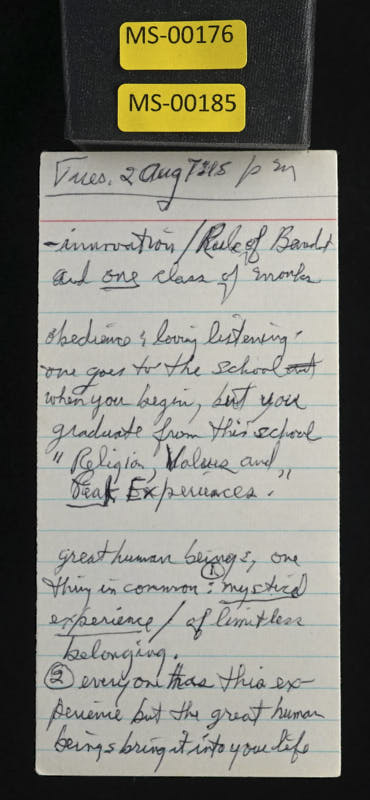 MS-00176
MS-00185
Tues. 2 Aug 7:45 pm
-innovation / Rule of Bened
and one class of monks
obedience & loving listening.
one goes to the school out
when you begin, but you
graduate from this school
"Religion, Values and
Peak Experiences."
great human beings, one
thing in common: ① mystical
experience / of limitless
belonging.
② everyone has this ex-
perience but the great human
beings bring it into your life